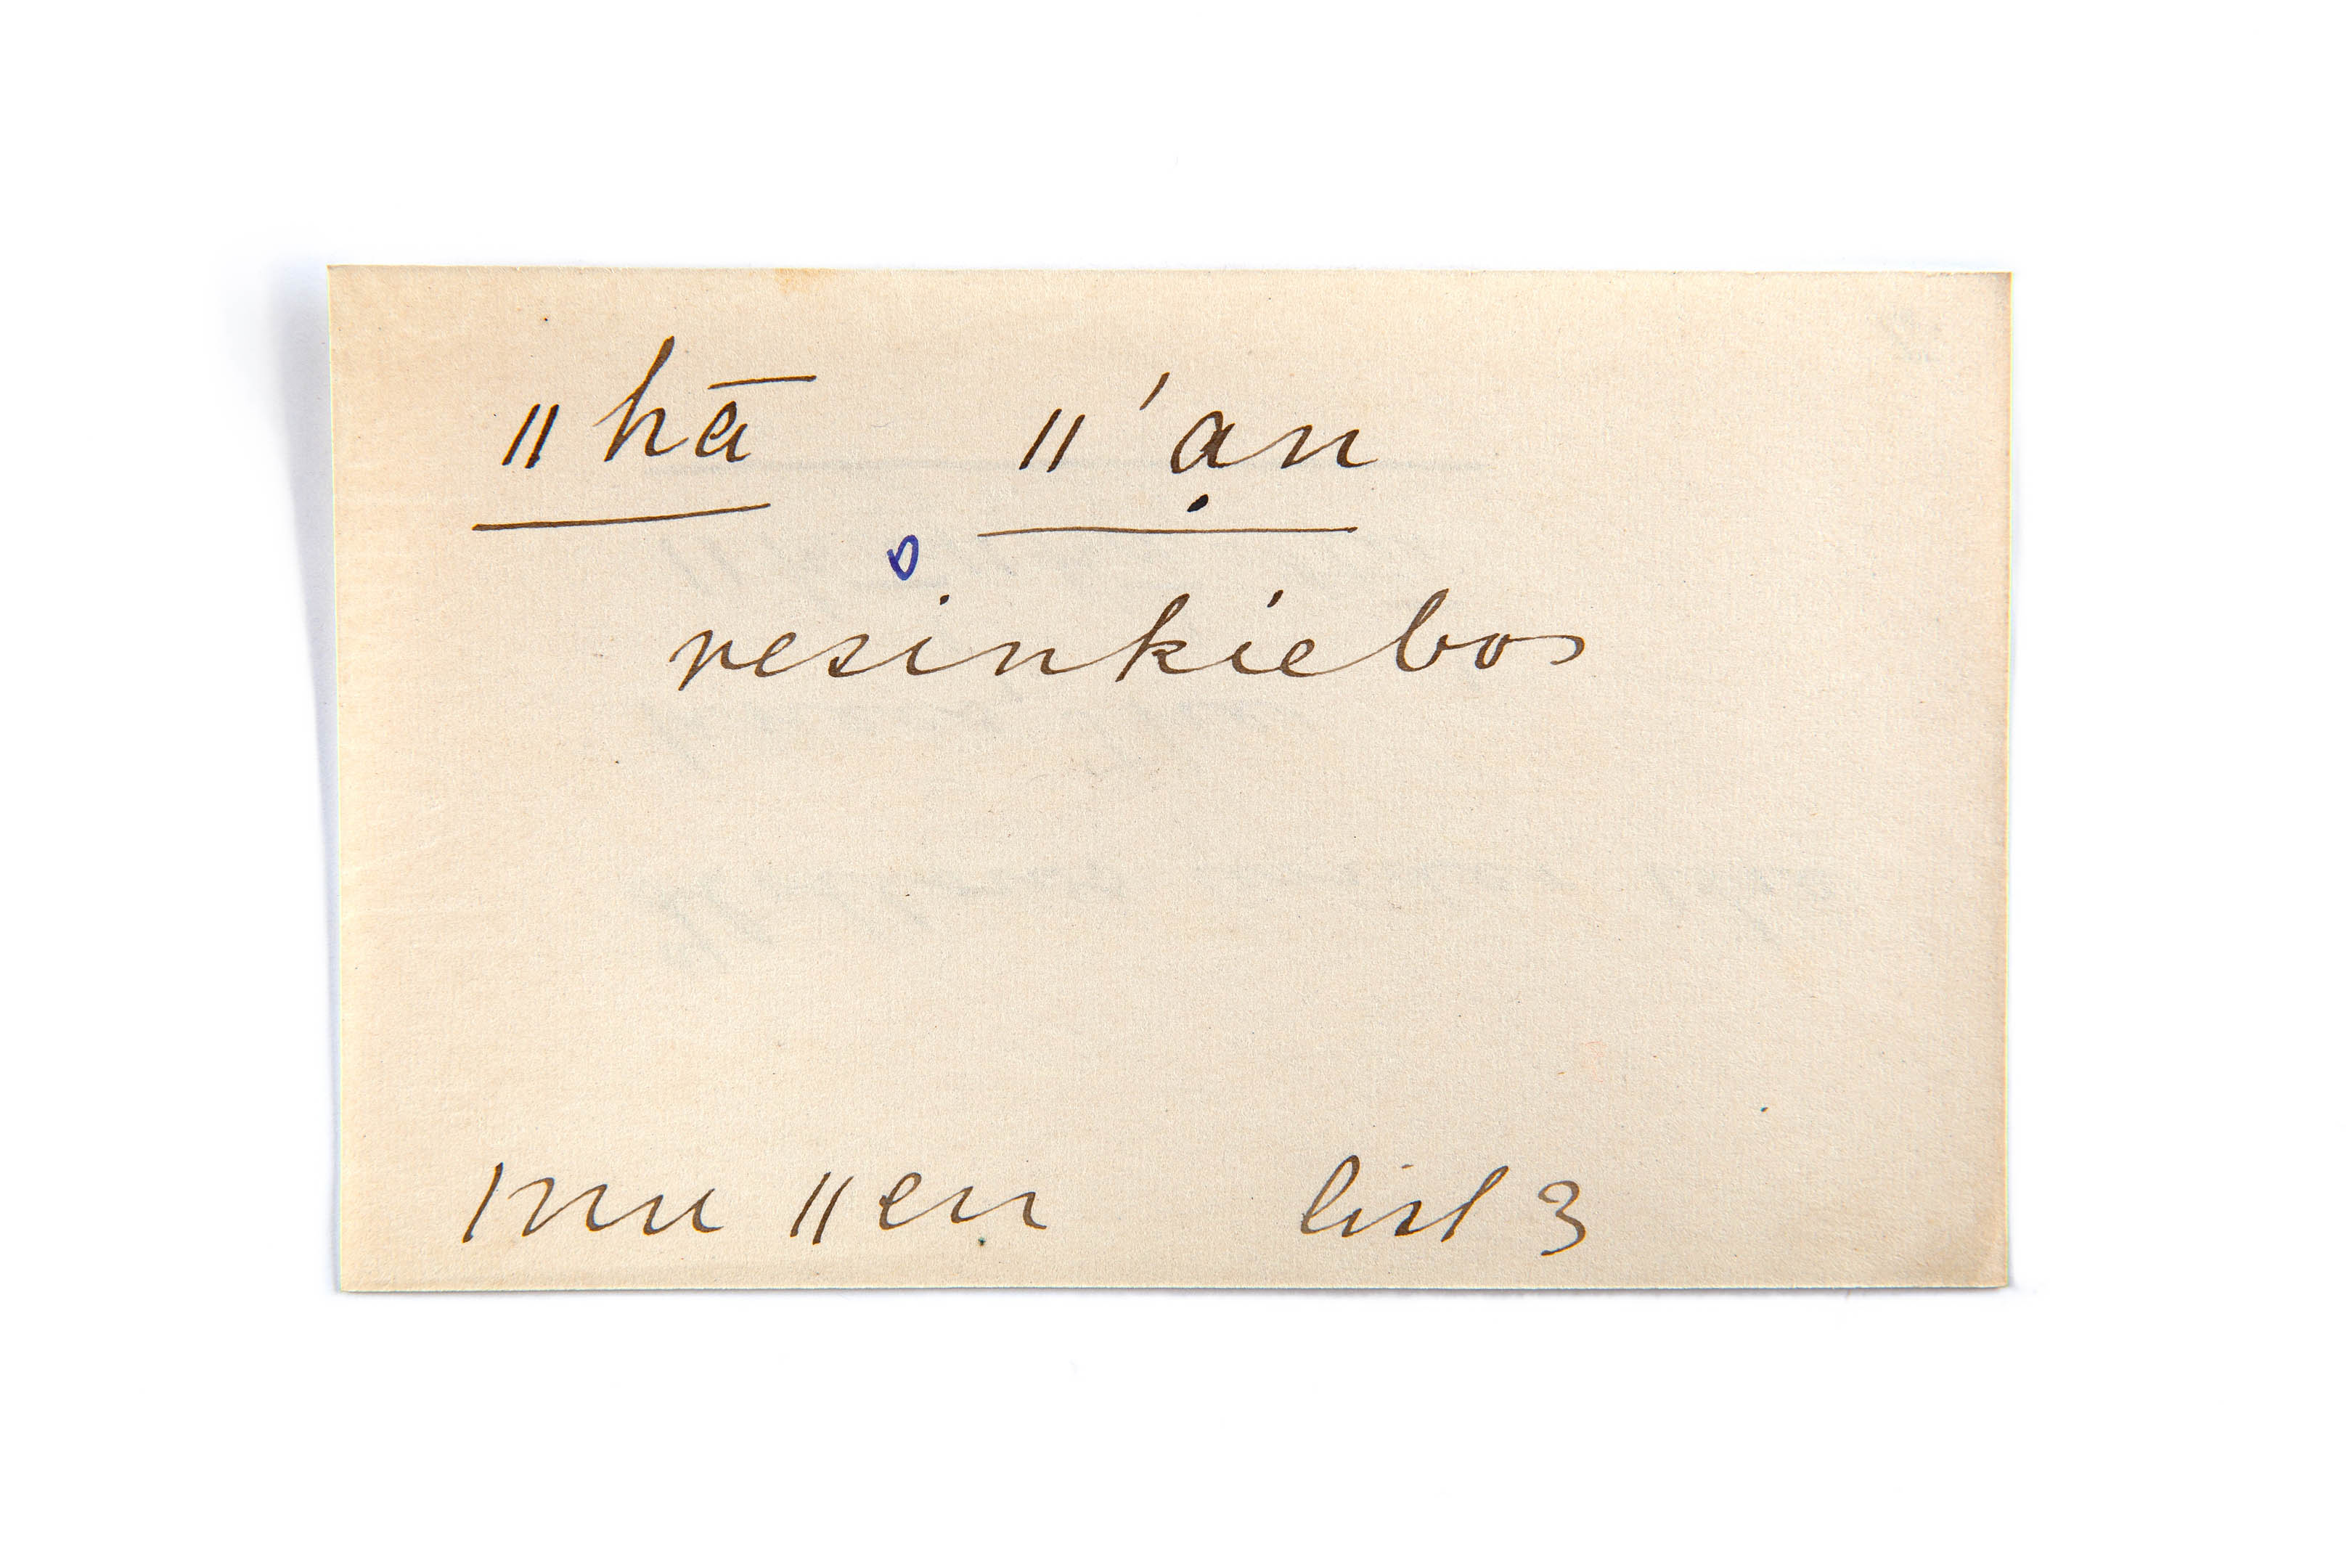 ǁhā ǁ'ạn
resinkiebos
ǀnu ǁen list 3